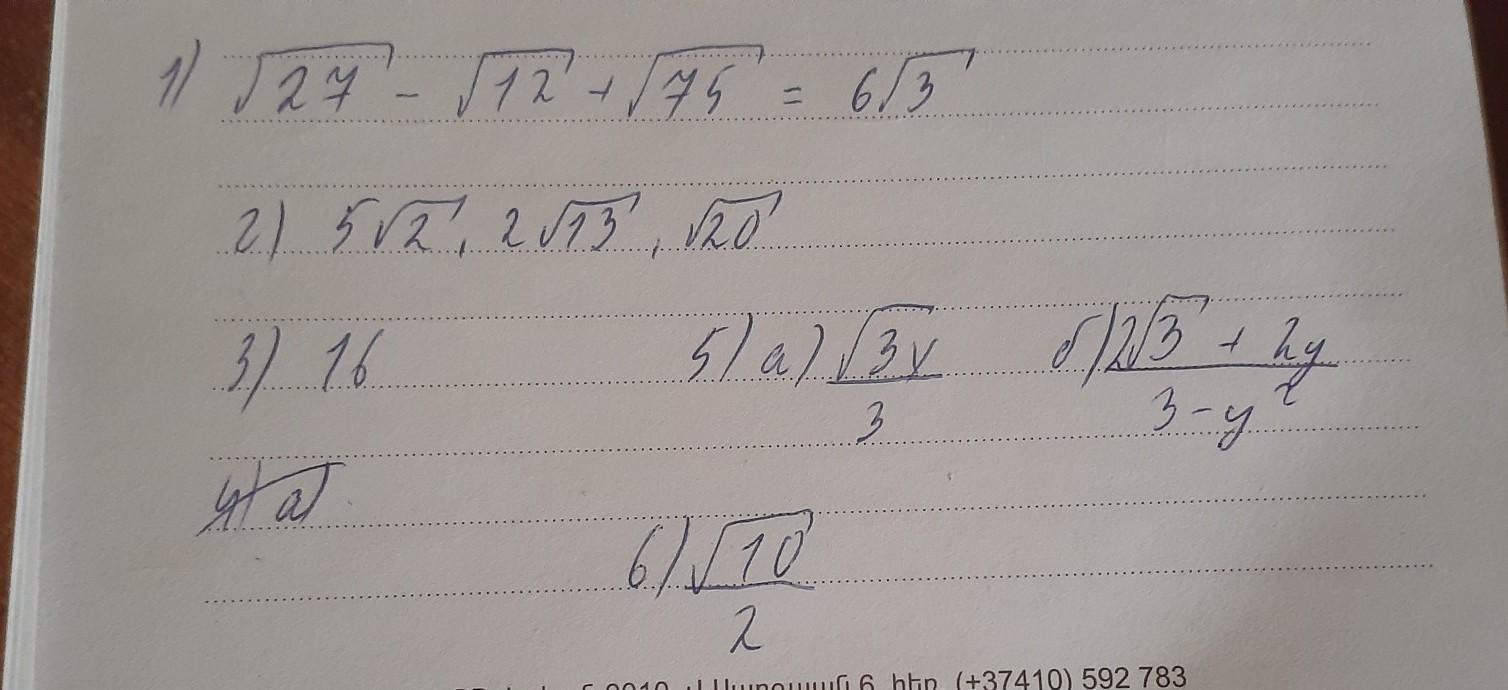 1) √27 - √12 + √75 = 6√3
2) 5√2, 2√13, √20
3) 16
5) а) √3y / 3 б) 2√3 + 2y / 3 - y²
4) а)
6) √10 / 2
6, հեռ. (+37410) 592 783